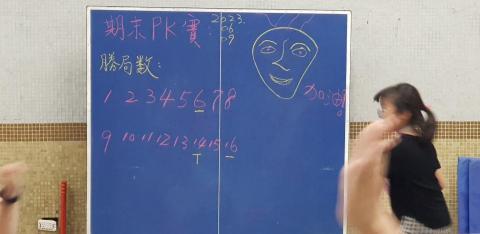 期末PK賽:
2023.
06
09
勝局数:
加油!
1 2 3 4 5 6 7 8
9 10 11 12 13 14 15 16
T